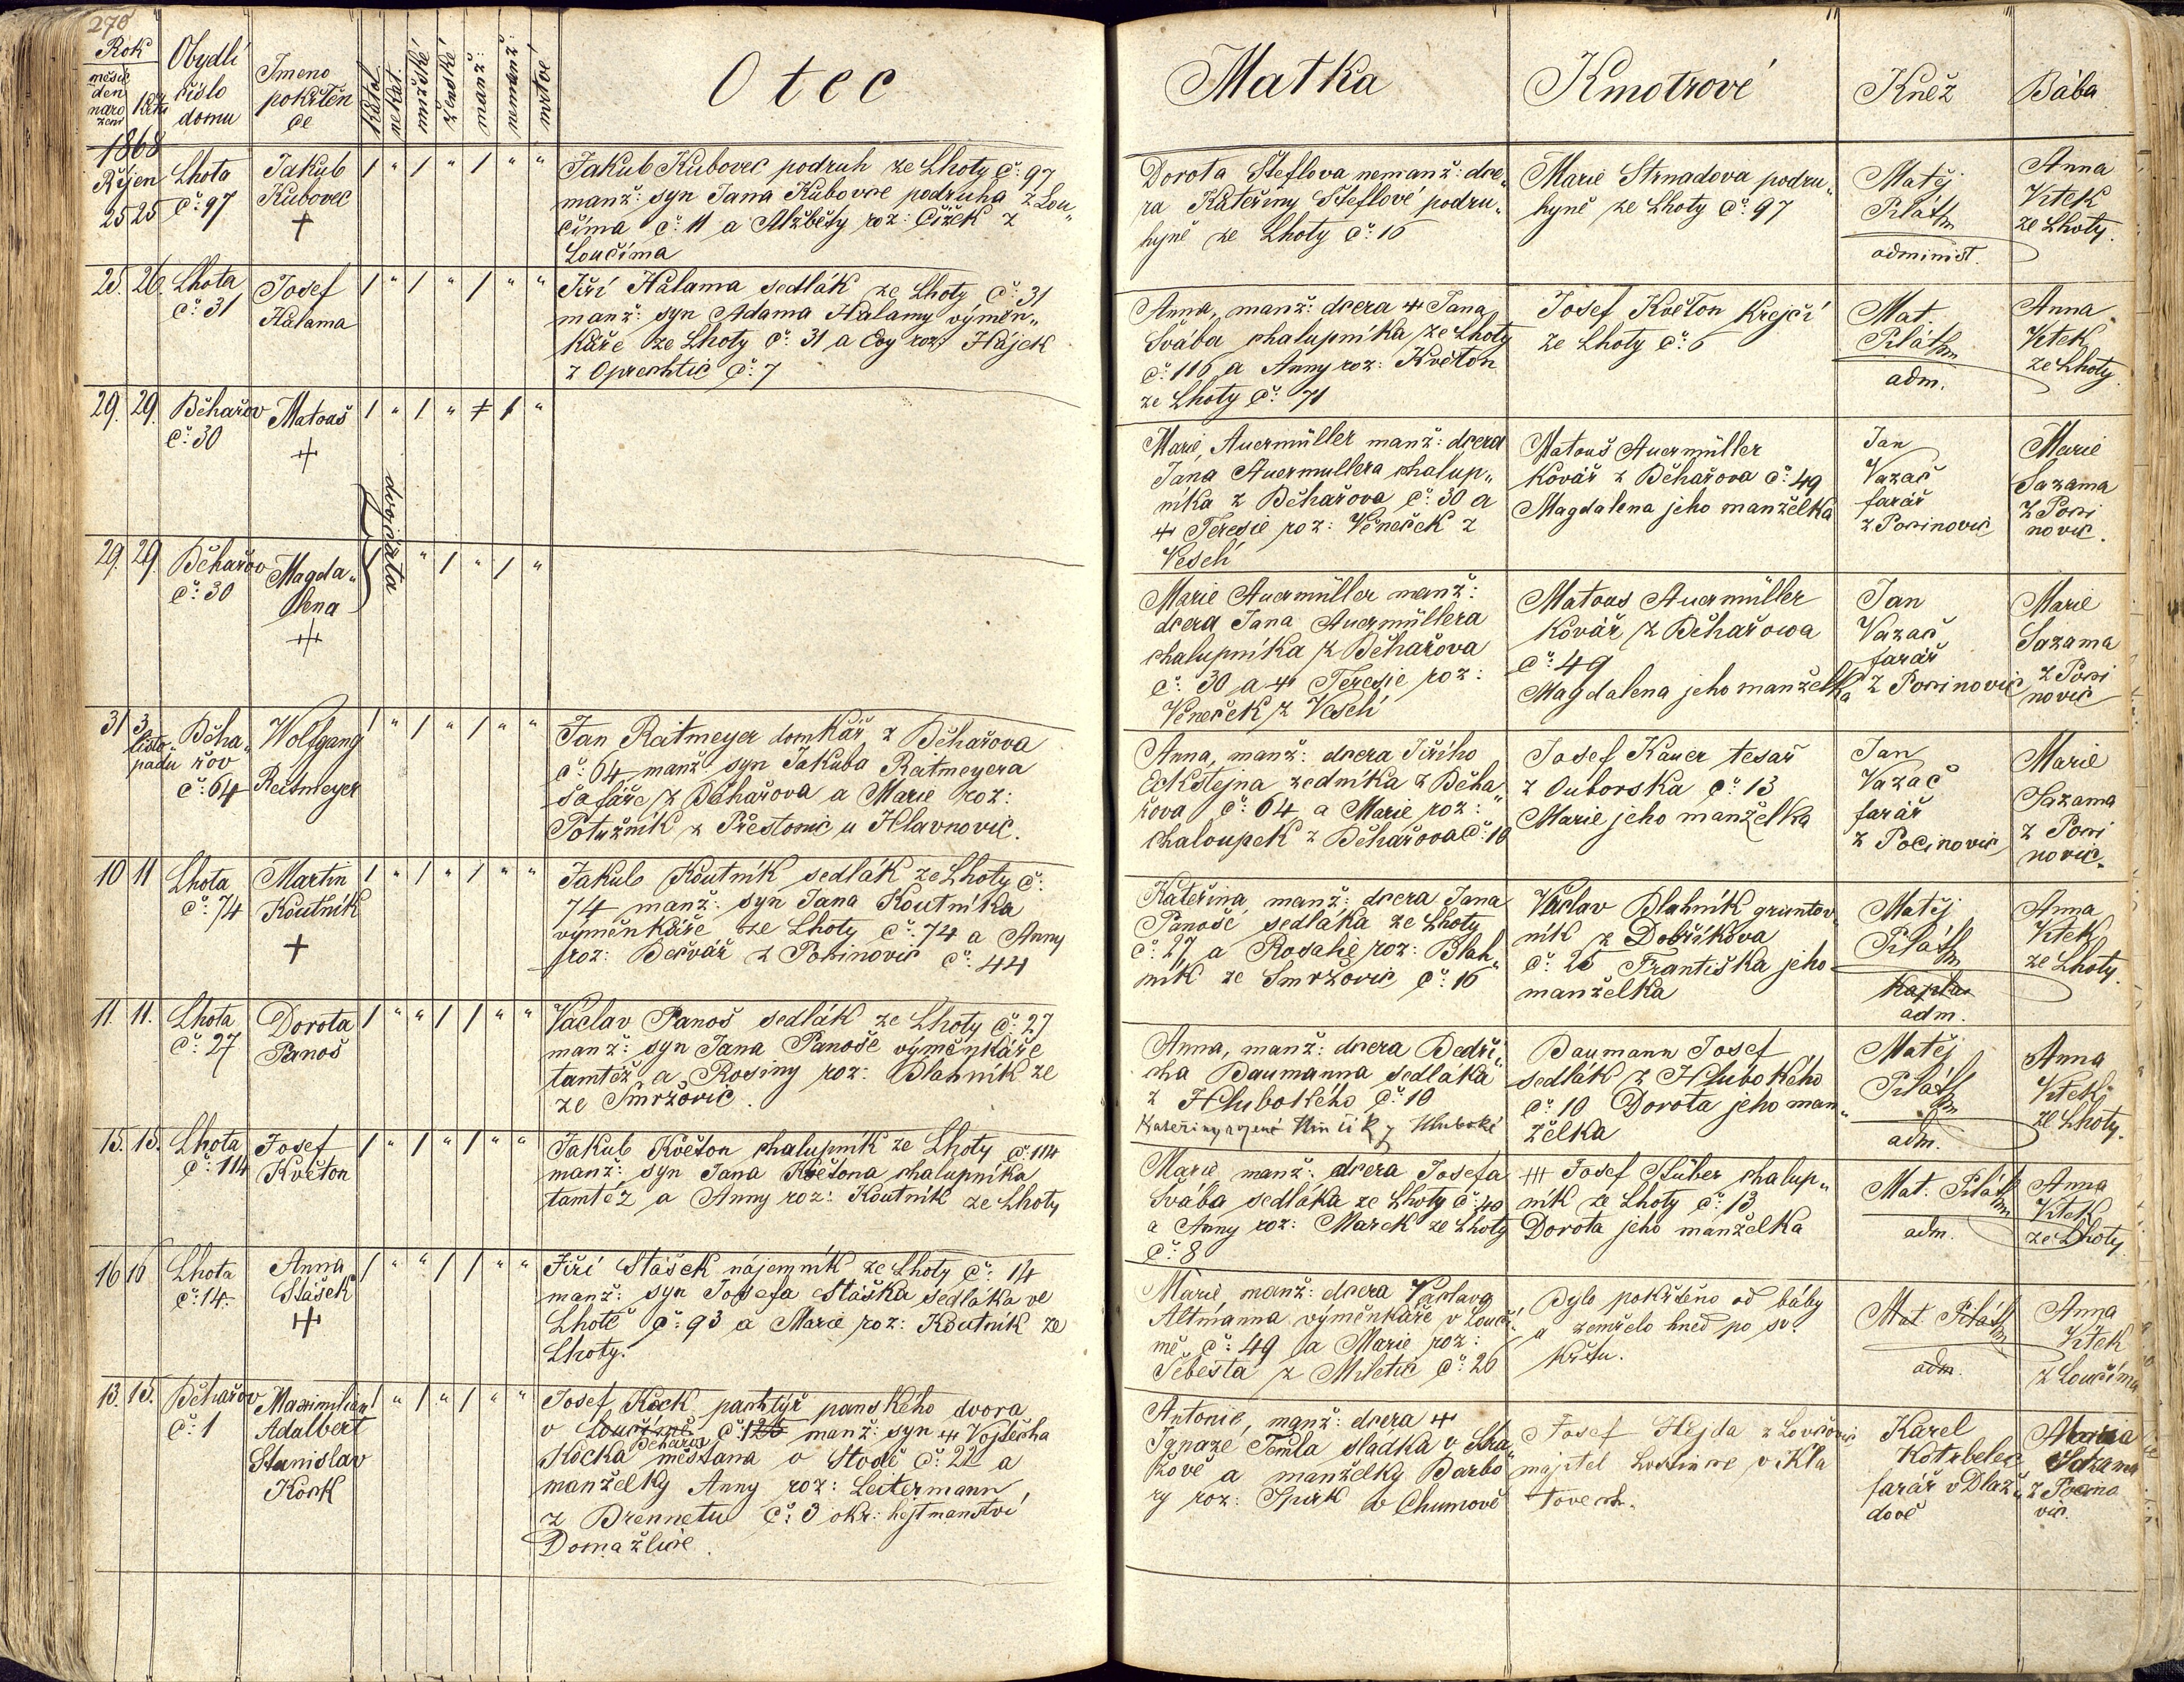 270
Rok
měsíc
den
naro
zení
křtu
Obydlí
číslo
domu
Jmeno
pokřtěn
ce
katol
nekat
mužské
ženské
manž:
nemanž:
mrtvé
Otec
Matka
Kmotrové
Kněz
Bába
1868
Říjen
25 25
Lhota
č: 97
Jakub
Kubovec
+
Jakub Kubovec podruh ze Lhoty č: 97
manž: syn Jana Kubovce podruha z Lou„
číma č: 11 a Alžběty roz: Čížek z
Loučíma
Dorota Šteflova nemanž: dce„
ra Kateřiny Šteflové podru„
hyně ze Lhoty č: 16
Marie Strnadova podru„
hyně ze Lhoty č: 97
Matěj
Piláth
administ.
Anna
Vítek
ze Lhoty.
25. 26.
Lhota
č: 31
Josef
Halama
Jiří Halama sedlák ze Lhoty č: 31
manž: syn Adama Halamy výměn„
káře ze Lhoty č: 31 a Evy roz: Hájek
z Oprechtic č: 7
Anna, manž: dcera + Jana
Švába chalupníka ze Lhoty
č: 116 a Anny roz: Květon
ze Lhoty č: 71
Josef Květon Krejčí
ze Lhoty č: 6
Mat
Piláth
adm.
Anna
Vítek
ze Lhoty.
29. 29.
Běhařov
č: 30
Matouš
+
dvojčata
Marie, Auermüller manž: dcera
Jana Auermullera chalup„
níka z Běhařova č: 30 a
+ Teresie roz: Věneček z
Veselí
Matouš Auermüller
Kovář z Běhařova č: 49
Magdalena jeho manželka
Jan
Vazač
farář
z Pocinovic
Marie
Sazama
z Poci
novic.
29. 29.
Běhařov
č: 30
Magda„
lena
+
Marie Auermüller manž:
dcera Jana Auermüllera
chalupníka z Běhařova
č: 30 a + Teresie roz:
Věneček z Veselí
Matous Auermüller
Kovář z Běhařowa
č: 49
Magdalena jeho manželka
Jan
Vazač
farář
z Pocinovic
Marie
Sazama
z Poci
novic
31 3.
listo„
padu
Běha„
řov
č: 64
Wolfgang
Reitmeyer
Jan Raitmeyer domkář z Běhařova
č: 64 manž: syn Jakuba Raitmeyera
šafáře z Běhařova a Marie roz:
Potužník z Přestonic u Hlavnovic.
Anna, manž: dcera Jiřího
Eckštejna zedníka z Běha„
řova č: 64 a Marie roz:
chaloupek z Běhařova č: 10
Josef Kauer tesař
z Ouborska č: 13
Marie jeho manželka
Jan
Vazač
farář
z Pocinovic
Marie
Sazama
z Poci
novic.
10 11
Lhota
č: 74
Martin
Koutník
+
Jakub Koutník sedlák ze Lhoty č:
74 manž: syn Jana Koutníka
výměnkáře ze Lhoty č: 74 a Anny
roz: Bečvář z Pocinovic č: 44
Kateřina manž: dcera Jana
Panoše sedláka ze Lhoty
č: 27 a Rosalie roz: Blah„
ník ze Smržovic č: 16
Václav Blahník gruntov„
ník z Dobříkova
č: 25 Františka jeho
manželka
Matěj
Piláth
kaplan
adm.
Anna
Vítek
ze Lhoty.
11. 11.
Lhota
č: 27
Dorota
Panoš
Václav Panoš sedlák ze Lhoty č: 27
manž: syn Jana Panoše výměnkáře
tamtéž a Rosiny roz: Blahník ze
ze Smržovic.
Anna, manž: dcera Bedři„
cha Baumanna sedláka
z Hlubokého č: 10
Kateřiny rozené z Hluboké
Baumann Josef
sedlák z Hlubokého
č: 10 Dorota jeho man„
želka
Matěj
Piláth
adm.
Anna
Vítek
ze Lhoty.
15. 15.
Lhota
č: 114
Josef
Květon
Jakub Květon chalupník ze Lhoty č: 114
manž: syn Jana Květona chalupníka
tamtéž a Anny roz: Koutník ze Lhoty
Marie manž: dcera Josefa
Švába sedláka ze Lhoty č: 40
a Anny roz: Marek ze Lhoty
č: 8
Josef Stüber chalup„
ník ze Lhoty č: 13
Dorota jeho manželka
Mat. Piláth
adm.
Anna
Vítek
ze Lhoty
16 16
Lhota
č: 14.
Anna
Stašek
+
Jiří Stašek nájemník ze Lhoty č: 14
manž: syn Josefa Staška sedláka ve
Lhotě č: 93 a Marie roz: Koutník ze
Lhoty.
Marie manž: dcera Václava
Altmanna výměnkáře v Loučí„
mě č: 49 a Marie roz:
Šebesta z Miletic č: 26
Bylo pokřtěno od báby
a zemřelo hned po sv.
křtu.
Mat. Piláth
adm.
Anna
Vítek
z Loučíma
13. 15.
Běhařov
č: 1
Maximilian
Adalbert
Stanislav
Köck
Josef Köck pachtýř panského dvora
v Loučímě č: 125 manž: syn + Vojtěcha
Běhařov
Köcka měšťana v Stodě č: 22 a
manželky Anny roz: Leitermann,
z Brennetu č: 3 okr: hejtmanství
Domažlice.
Antonie, manž: dcera +
Ignaze Temla sladka v Stra„
žově a manželky Barbo
ry roz: Spirk v Chumově
Josef Hejda z Lovčovic
majitel v Kla
tovech.
Karel
Kotrbelec
farář v Dlaž„
dově
Maria
Sazama
z Pocino
vic.